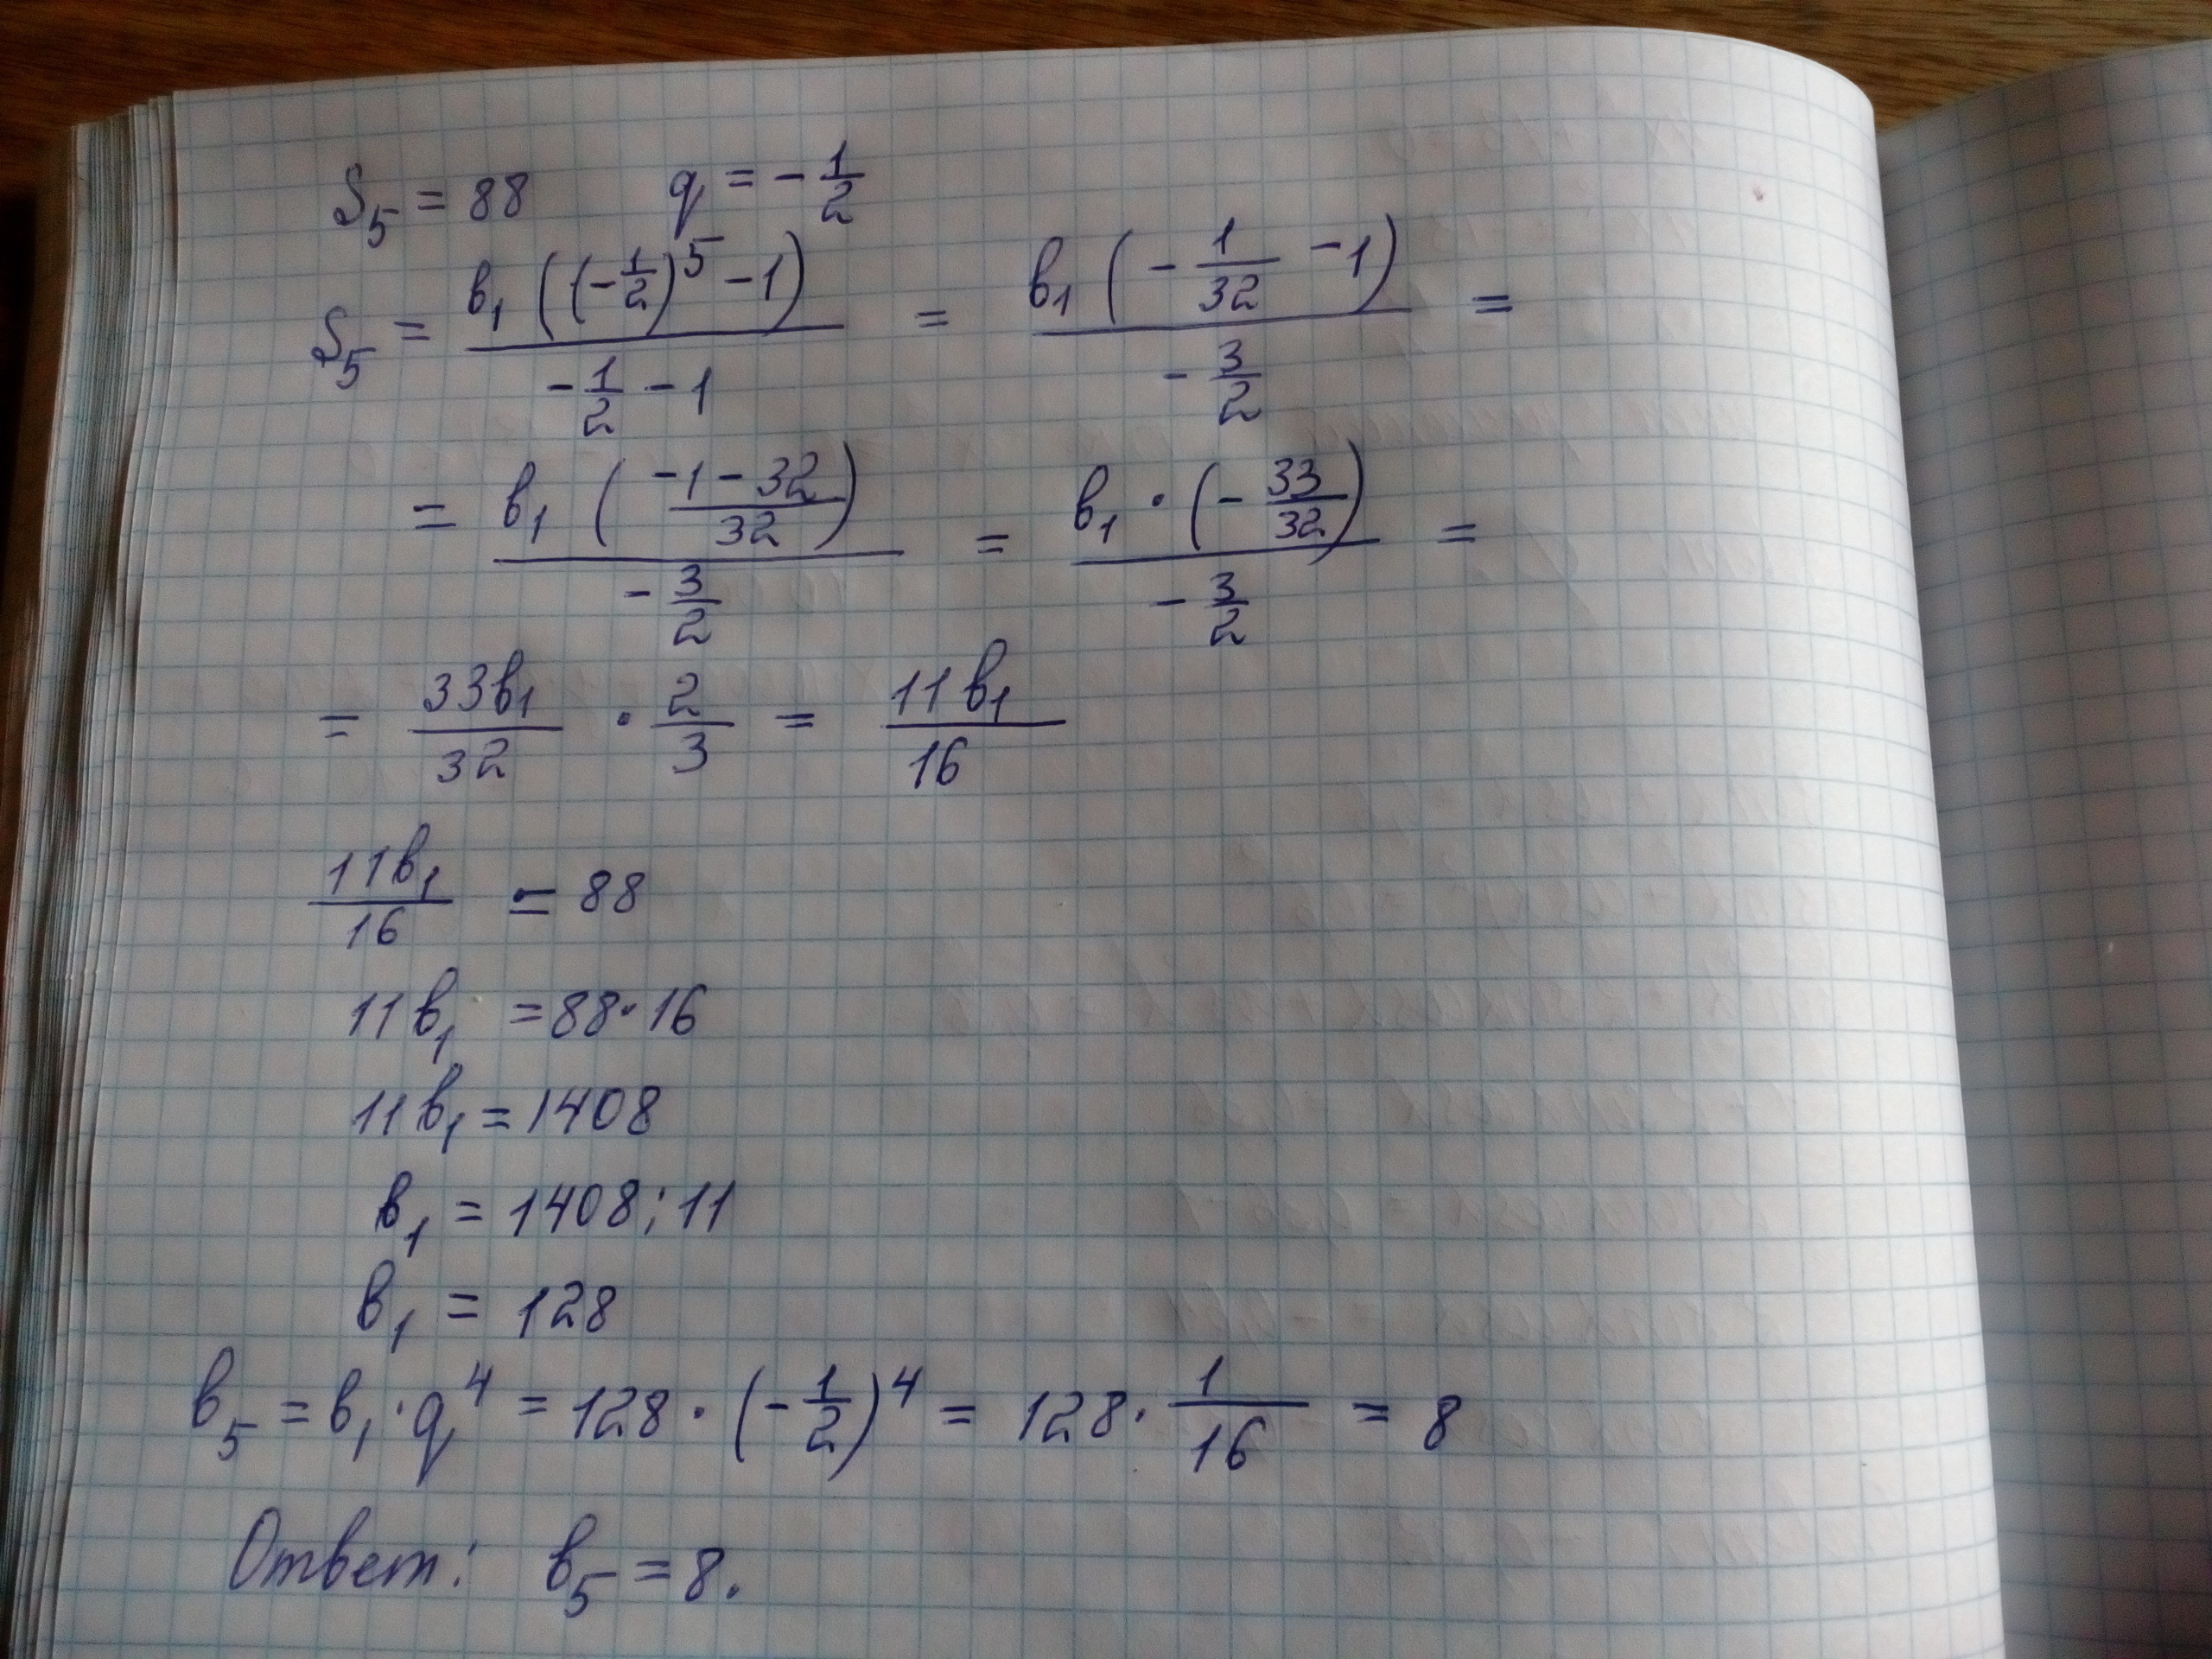 S₅ = 88 q = -1/2
S₅ = b₁((-1/2)⁵ - 1)/(-1/2 - 1) = b₁(-1/32 - 1)/(-3/2) =
= b₁((-1 - 32)/32)/(-3/2) = b₁ · (-33/32)/(-3/2) =
= 33b₁/32 · 2/3 = 11b₁/16
11b₁/16 = 88
11b₁ = 88 · 16
11b₁ = 1408
b₁ = 1408 : 11
b₁ = 128
b₅ = b₁ · q⁴ = 128 · (-1/2)⁴ = 128 · 1/16 = 8
Ответ: b₅ = 8.